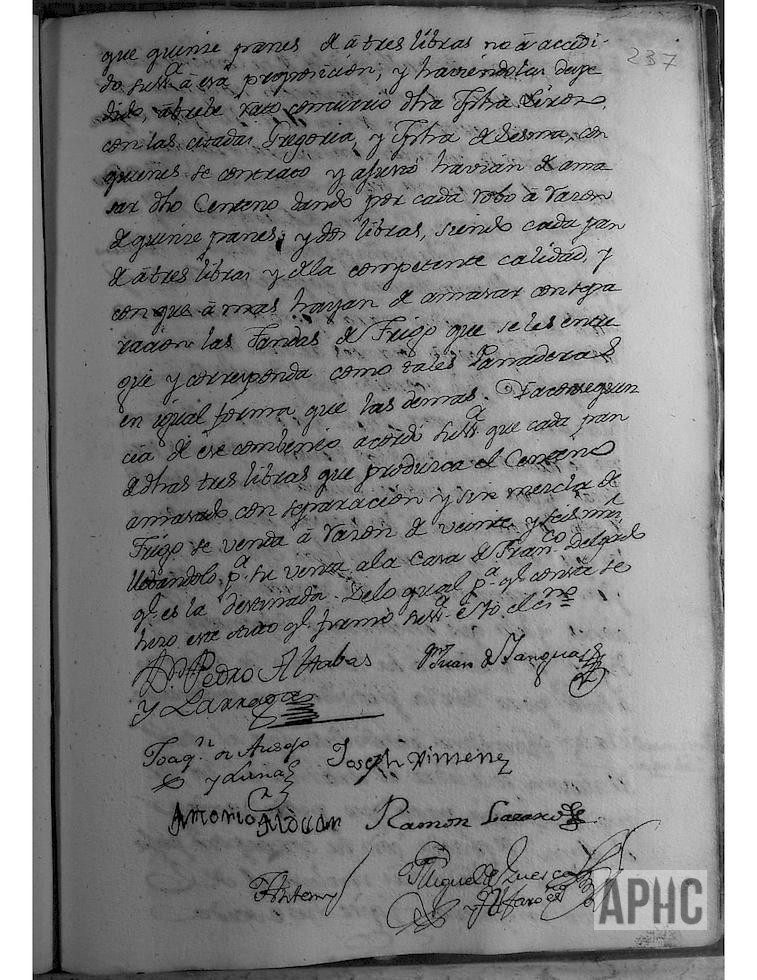 237
que quinze panes de â tres libras no â accedi-
do su sª â esa proposicion, y haviendolas despe
dido, â breve rato concurrió dha Fjsha
con las citadas Gregoria, y Fjsha de Lesma, con
quienes se contrató y ajustó havian de ama
sar dho Centeno dando por cada robo â razon
de quinze panes, y dos libras, siendo cada pan
de â tres libras y de la competente calidad, y
con que â mas hayan de amasar con sepa
racion las Tandas de Trigo que se les entre
gue y corresponda como tales Panaderas
en igual forma que las demas. Y a consequen
cia de ese combenio acordó su sª que cada pan
de dhas tres libras que produzca el Centeno
amasado con separacion y sin mezcla de
Trigo se venda â razon de veinte y seis mrs
llebandolo pª su venta a la Casa de Franco Delgado
qe es la destinada. De lo qual pª qe conste se
hizo este Auto qe firmó su sª e Yo el Esno
Dn Pedro Altabas
y Larraga
Juan de Tanguas
Joaqn de Auzgo
y Luna
Joseph Ximenez
Antonio Alducan
Ramon Lazaro
Antemi
Miguel de Huesca
y Alfaro
APHC